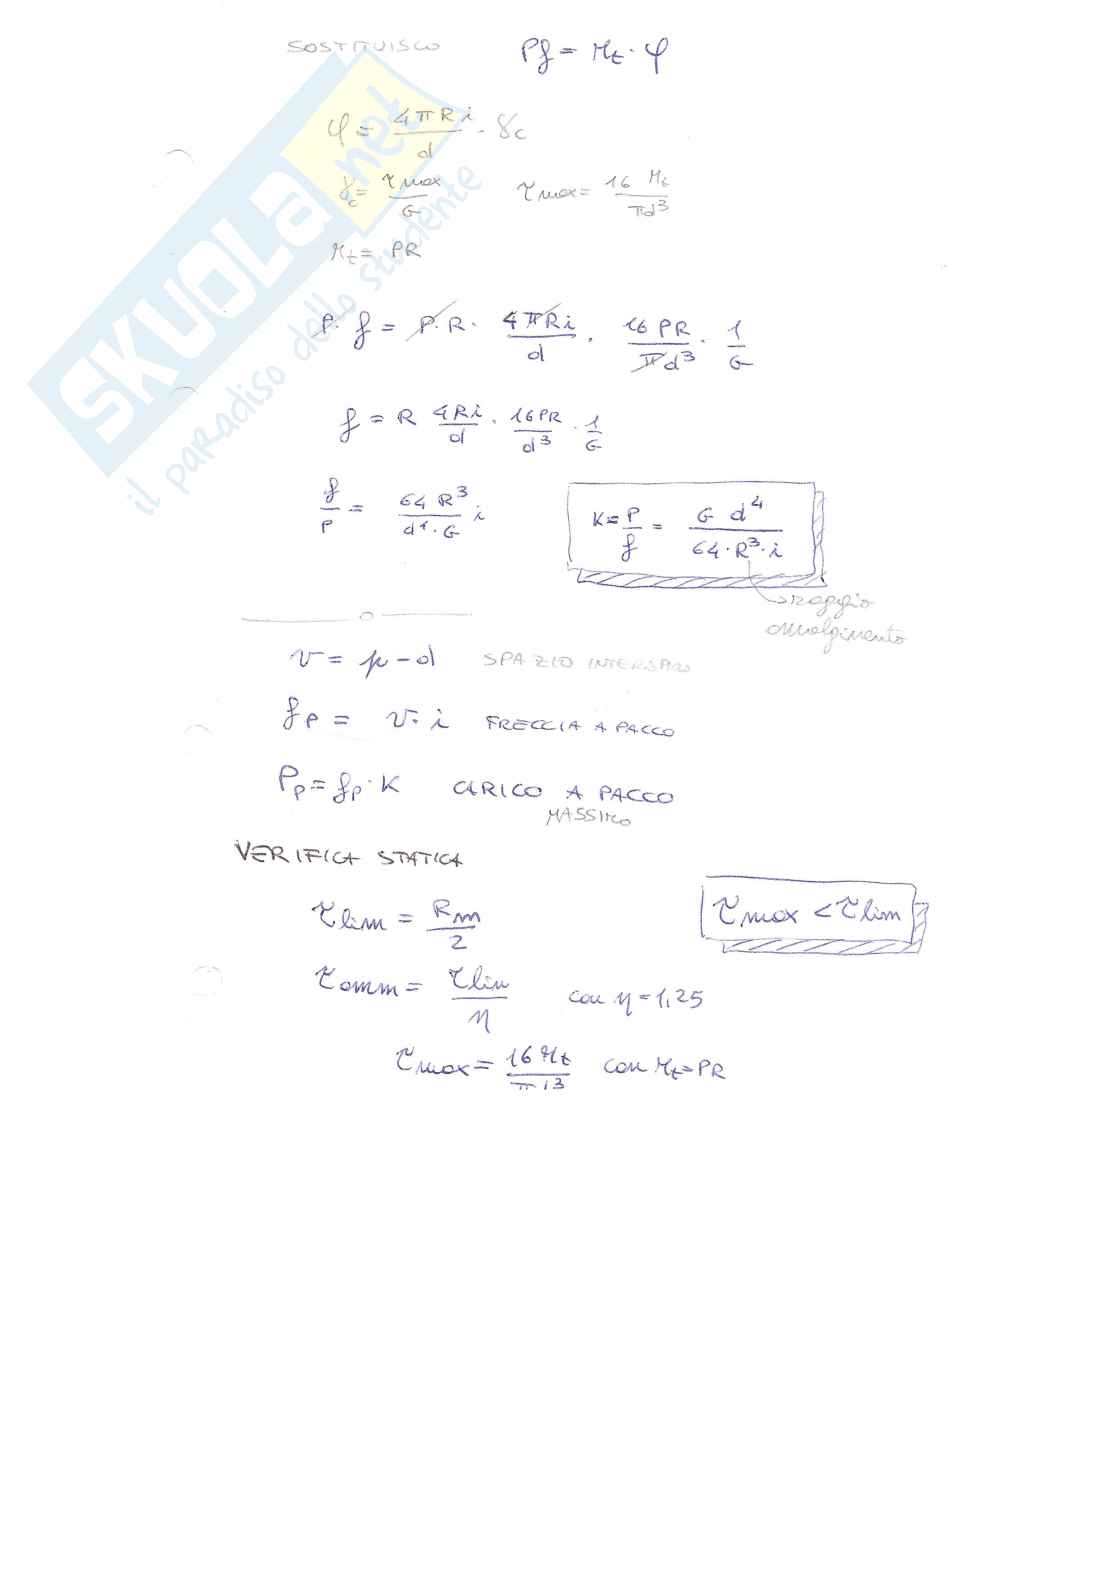 SOSTITUISCO Pf = Mt · φ
φ = 4πRi/d · γc
γc = τmax/G τmax = 16 Mt/πd³
Mt = PR
P · f = P · R · 4πRi/d · 16PR/πd³ · 1/G
f = R 4Ri/d · 16PR/d³ · 1/G
f/P = 64 R³/d⁴ · G i
K = P/f = G d⁴/64 · R³ · i
→ raggio
avvolgimento
v = p - d SPAZIO INTERSPIRO
fp = v · i FRECCIA A PACCO
Pp = fp · K CARICO A PACCO
MASSIMO
VERIFICA STATICA
τlim = Rm/2 τmax < τlim
τamm = τlim/η con η = 1,25
τmax = 16 Mt/πd³ con Mt = PR
SKUOLA.net
il paradiso dello studente